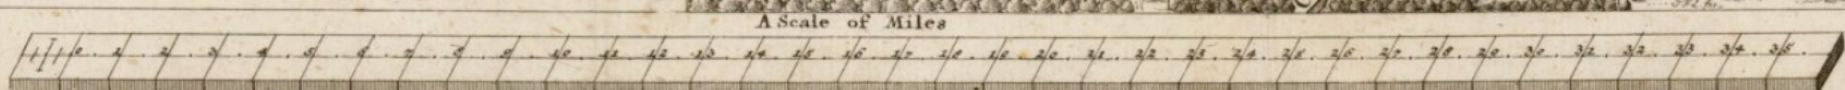 A Scale of Miles
0 . 1 . 2 . 3 . 4 . 5 . 6 . 7 . 8 . 9 . 10 . 11 . 12 . 13 . 14 . 15 . 16 . 17 . 18 . 19 . 20 . 21 . 22 . 23 . 24 . 25 . 26 . 27 . 28 . 29 . 30 . 31 . 32 . 33 . 34 . 35 .